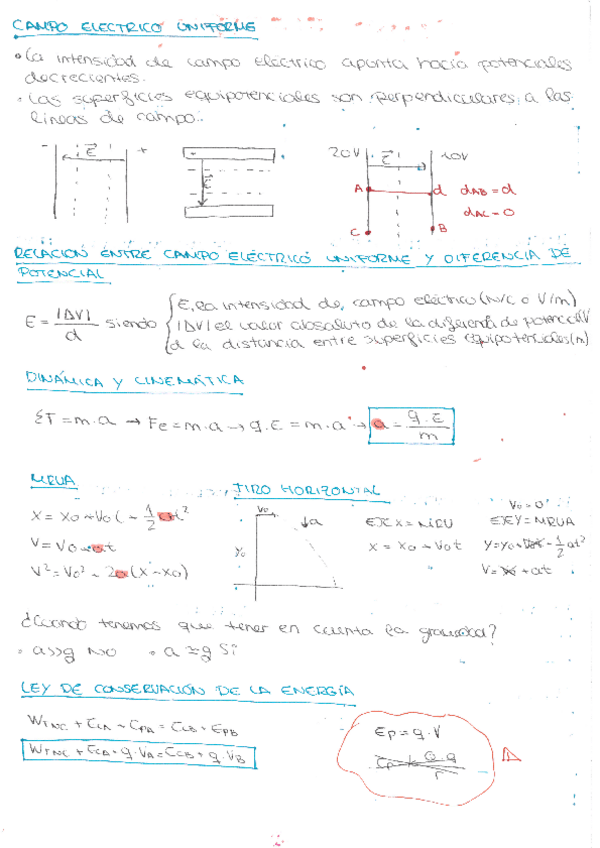 CAMPO ELECTRICO UNIFORME
• La intensidad de campo eléctrico apunta hacia potenciales
decrecientes.
• Las superficies equipotenciales son perpendiculares a las
líneas de campo.
- E +
E
20V E 10V
A d dAB = d
dAC = 0
C B
RELACION ENTRE CAMPO ELÉCTRICO UNIFORME Y DIFERENCIA DE
POTENCIAL
E = |ΔV| / d siendo
E, la intensidad de campo eléctrico (N/C o V/m)
|ΔV| el valor absoluto de la diferencia de potencial
d la distancia entre superficies equipotenciales (m)
DINÁMICA Y CINEMÁTICA
ΣF = m.a → Fe = m.a → q.E = m.a → a = q.E / m
MRUA TIRO HORIZONTAL
Vo = 0
X = Xo + Vot + 1/2 at²
V = Vo + at
V² = Vo² + 2a(X - Xo)
Vo
↓a
Yo
EJE X = MRU
X = Xo + Vot
EJE Y = MRUA
Y = Yo + 1/2 at²
V = + at
¿Cuando tenemos que tener en cuenta la gravedad?
• a>>g NO • a ≈ g Sí
LEY DE CONSERVACIÓN DE LA ENERGÍA
WFNC + ECA + EPA = ECB + EPB
WFNC + ECA + q.VA = ECB + q.VB
Ep = q.V